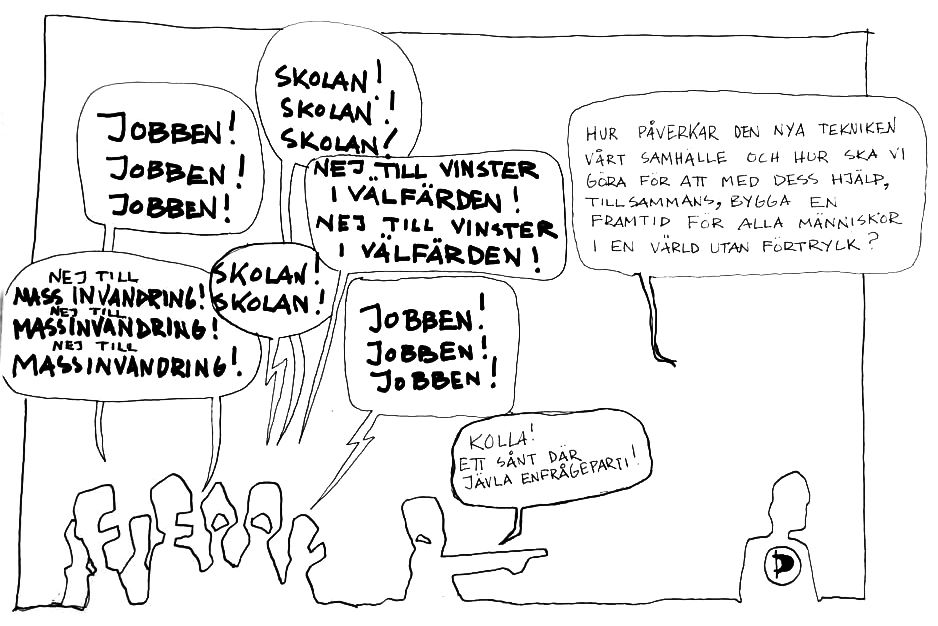 SKOLAN!
SKOLAN!
SKOLAN!
JOBBEN!
JOBBEN!
JOBBEN!
NEJ TILL VINSTER
I VÄLFÄRDEN!
NEJ TILL VINSTER
I VÄLFÄRDEN!
HUR PÅVERKAR DEN NYA TEKNIKEN
VÅRT SAMHÄLLE OCH HUR SKA VI
GÖRA FÖR ATT MED DESS HJÄLP,
TILLSAMMANS, BYGGA EN
FRAMTID FÖR ALLA MÄNNISKOR
I EN VÄRLD UTAN FÖRTRYCK?
NEJ TILL
MASSINVANDRING!
NEJ TILL
MASSINVANDRING!
NEJ TILL
MASSINVANDRING!
SKOLAN!
SKOLAN!
JOBBEN!
JOBBEN!
JOBBEN!
KOLLA!
ETT SÅNT DÄR
JÄVLA ENFRÅGEPARTI!